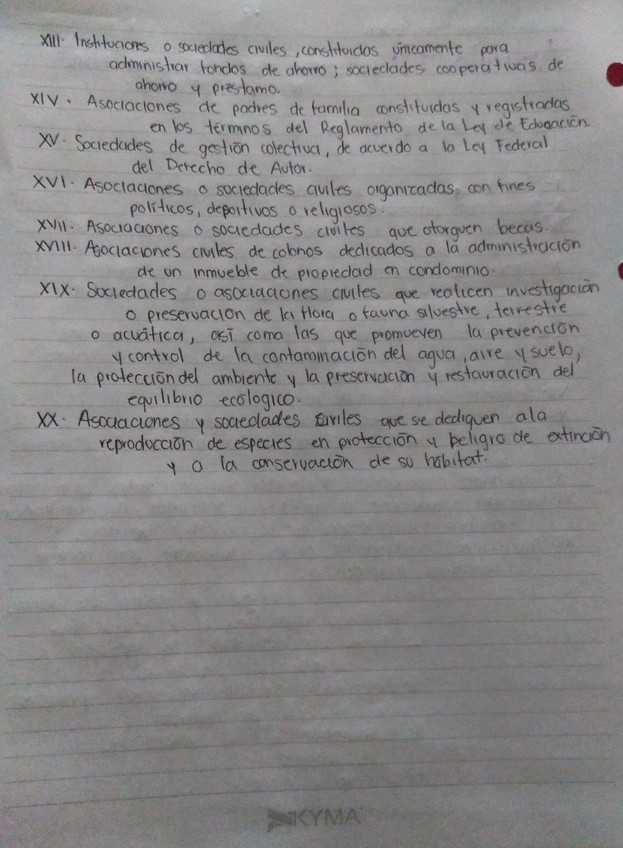 XIII. Instituciones o sociedades civiles, constituidas únicamente para
administrar fondos de ahorro; sociedades cooperativas de
ahorro y préstamo.
XIV. Asociaciones de padres de familia constituidas y registradas
en los términos del Reglamento de la Ley de Educación
XV. Sociedades de gestión colectiva, de acuerdo a la Ley Federal
del Derecho de Autor.
XVI. Asociaciones o sociedades civiles organizadas con fines
políticos, deportivos o religiosos.
XVII. Asociaciones o sociedades civiles que otorguen becas.
XVIII. Asociaciones civiles de colonos dedicados a la administración
de un inmueble de propiedad en condominio.
XIX. Sociedades o asociaciones civiles que realicen investigación
o preservación de la flora o fauna silvestre, terrestre
o acuática, así como las que promueven la prevención
y control de la contaminación del agua, aire y suelo,
la protección del ambiente y la preservación y restauración del
equilibrio ecologico.
XX. Asociaciones y sociedades civiles que se dediquen a la
reproducción de especies en protección y peligro de extinción
y a la conservación de su hábitat.
KYMA